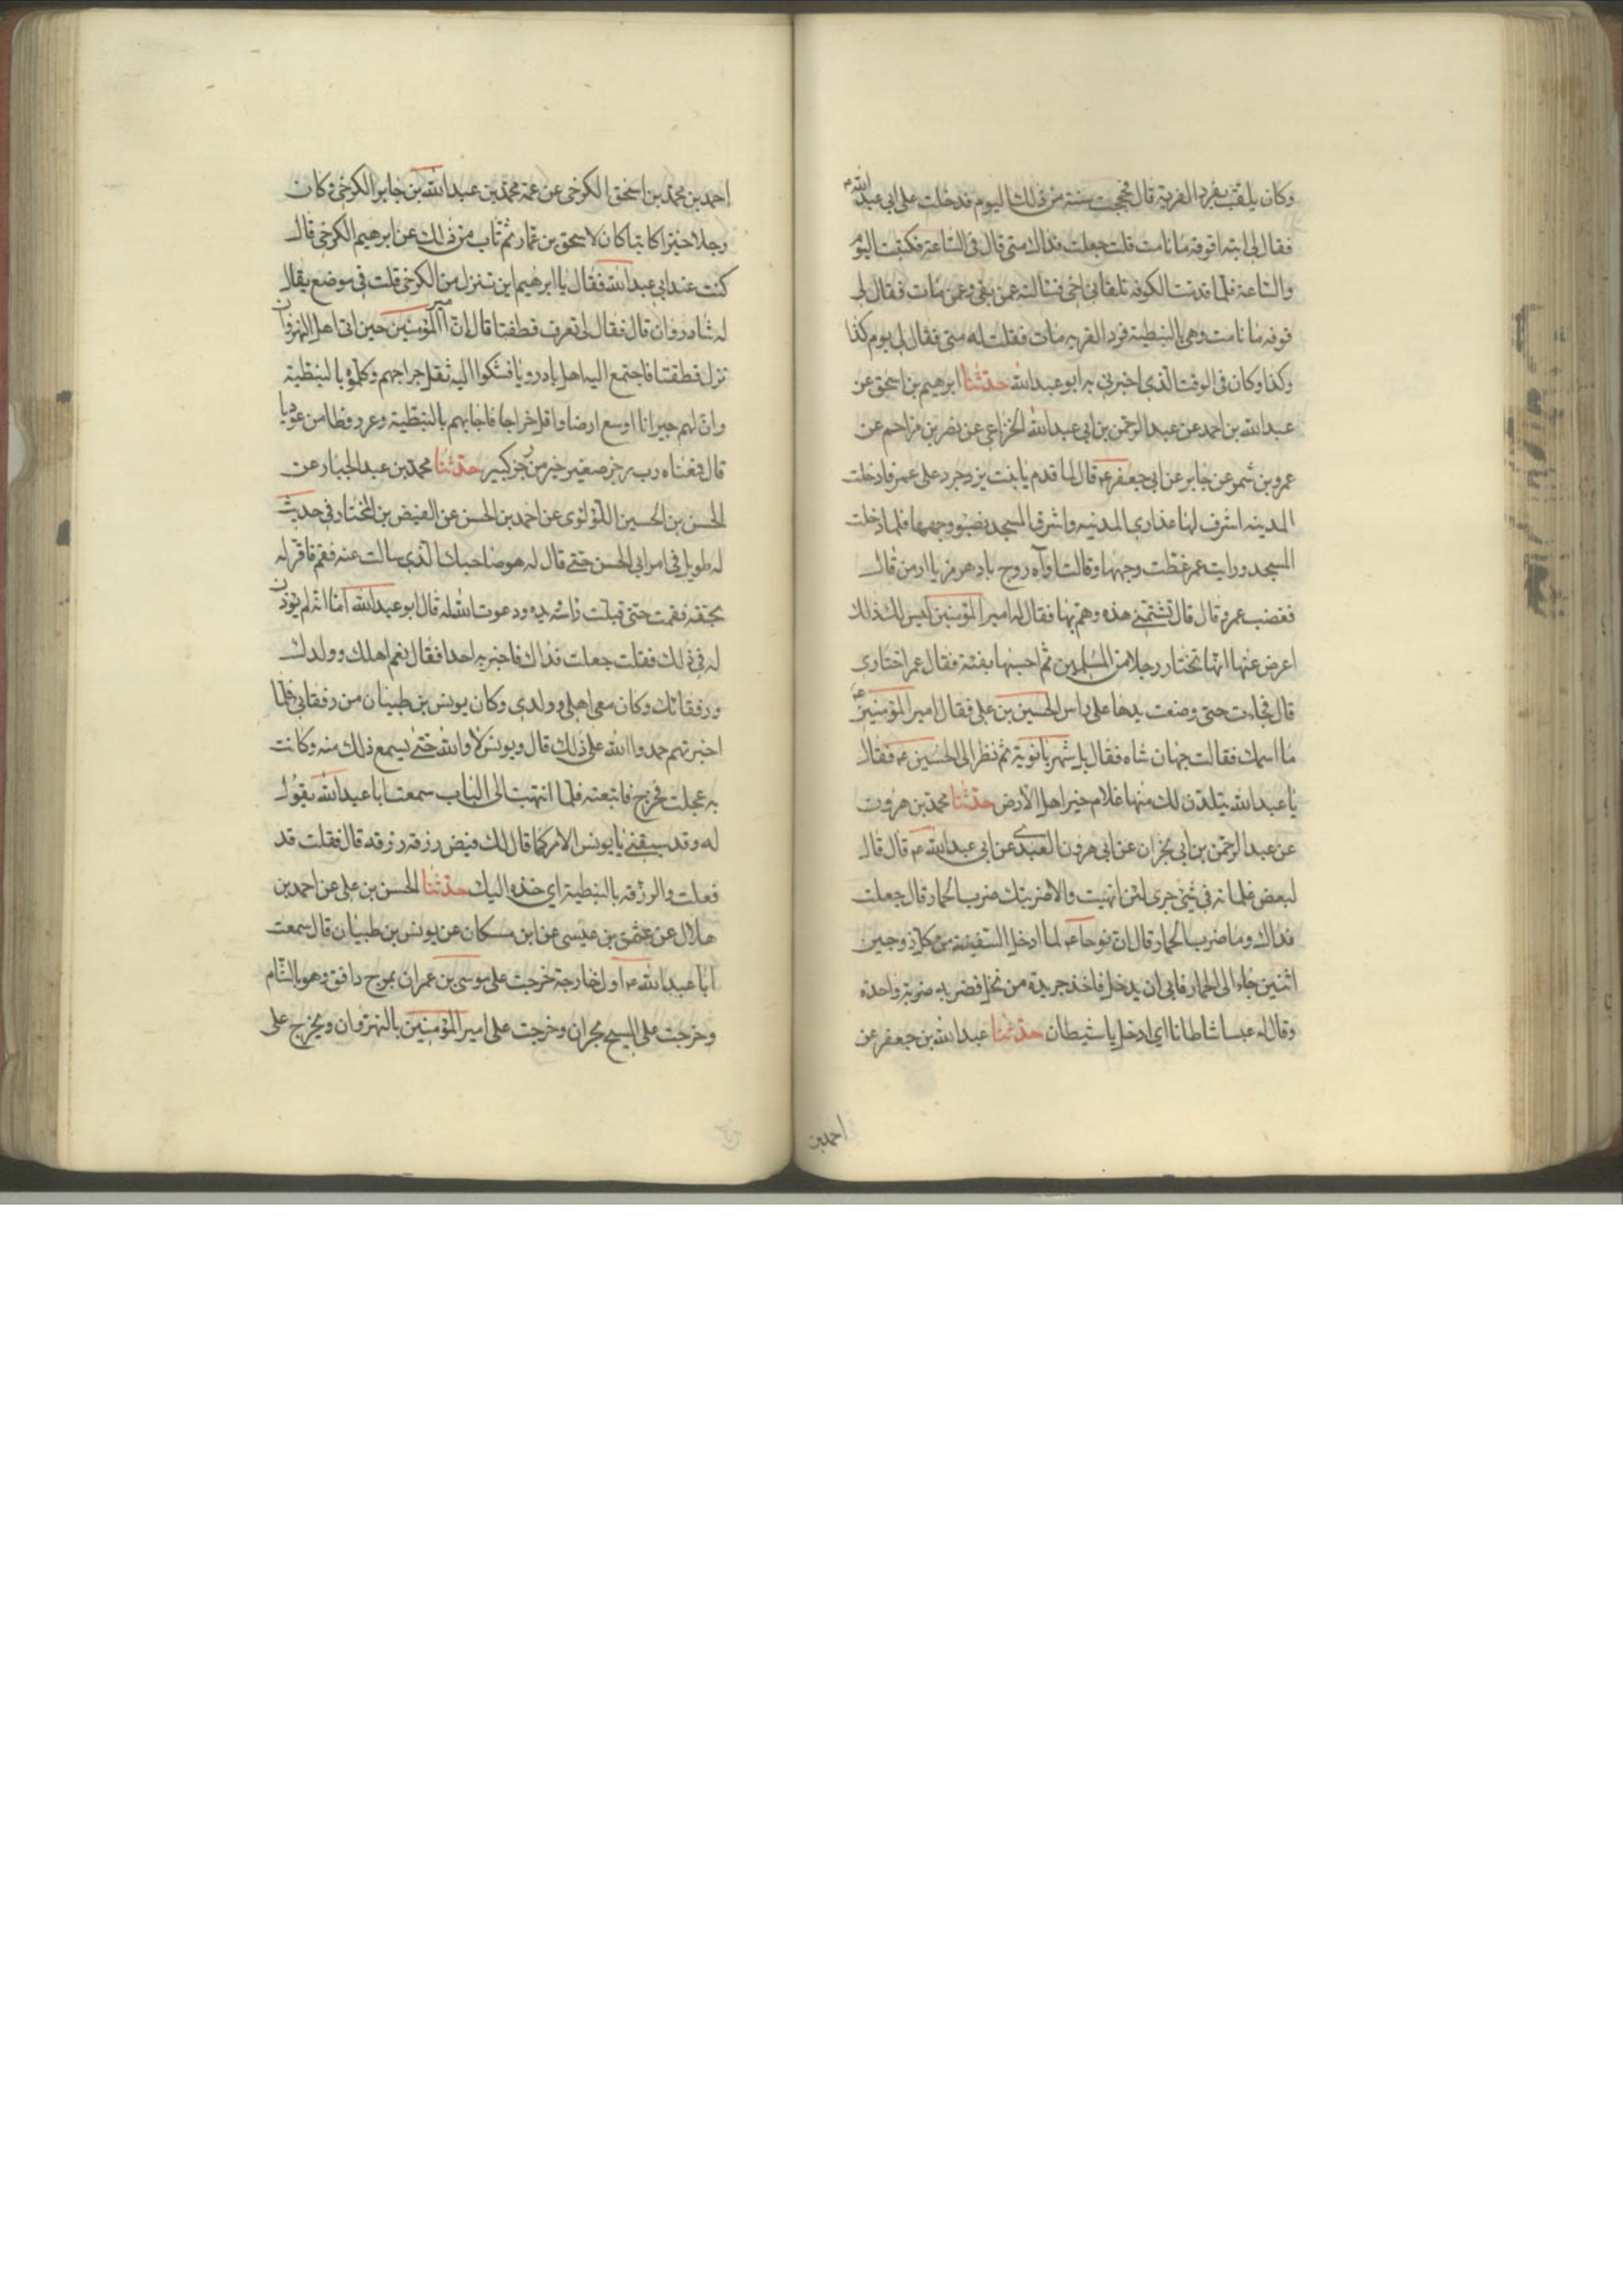 وكان يلقب بفرد القرية قال فحججت سنة من ذلك اليوم فدخلت على ابى عبد الله ع
فقال لى ابتداء قوفه مانامت قلت جعلت فداك متى قال فى الساعة فكتبت اليوم
والساعة فلما قدمت الكوفه تلقانى اخى فسالته عمن بقى وعمن مات فقال لى
قوفه مانامت وهى بالنبطية فرد القريه مات فقلت له متى فقال لى يوم كذا
وكذا وكان فى الوقت الذى اخبرنى به ابو عبد الله حدثنا ابرهيم بن اسحق عن
عبد الله بن احمد عن عبد الرحمن بن ابى عبد الله الخزاعى عن نصر بن مزاحم عن
عمرو بن شمر عن جابر عن ابى جعفر ع قال لما قدم يابنت يزدجرد على عمر فادخلت
المدينه اشرف لها عذارى المدينه واشرق المسجد بضوء وجهها فلما دخلت
المسجد ورايت عمر غطت وجهها وقالت اواه روج باد هرمز يا ارمن قال
فغضب عمر و قال قال تشتمنى هذه وهم بها فقال له امير المؤمنين ليس لك ذلك
اعرض عنها انها تختار رجلا من المسلمين ثم احسبها بفئه فقال عمر اختارى
قال فجاءت حتى وضعت يدها على راس الحسين بن على فقال امير المؤمنين ع
ما اسمك فقالت جهان شاه فقال بل شهربانوية ثم نظر الى الحسين ع فقال
يا عبد الله يتلدن لك منها غلام خير اهل الارض حدثنا محمد بن هرون
عن عبد الرحمن بن ابى نجران عن ابى هرون العبدى عن ابى عبد الله ع قال قال
لبعض غلمانه فى شئ جرى لئن انتهيت والا ضربتك ضرب الحمار قال جعلت
فداك وما ضرب الحمار قال ان نوحا ع لما ادخل السفينة من كل زوجين
اثنين جاء الى الحمار فابى ان يدخل فاخذ جريدة من نخل فضربه ضربة واحده
وقال له عبسا شاطانا اى ادخل يا شيطان حدثنا عبد الله بن جعفر عن
احمد بن
احمد بن محمد بن اسحق الكرخى عن عمه محمد بن عبد الله بن جابر الكرخى وكان
رجلا خيرا كاتبا كان لاسحق بن عمار ثم تاب من ذلك عن ابرهيم الكرخى قال
كنت عند ابى عبد الله فقال يا ابرهيم اين تنزل من الكرخى قلت فى موضع يقال
له شادروان قال فقال لى تعرف قطفتا قال ان امير المؤمنين حين اتى اهل النهروان
نزل قطفتا فاجتمع اليه اهل بادرويا فشكوا اليه ثقل خراجهم وكلموه بالنبطية
وان لهم جيرانا اوسع ارضا واقل خراجا فاجابهم بالنبطية وعرروطا من عوديا
قال فمعناه رب رجز صغير خير من رجز كبير حدثنا محمد بن عبد الجبار عن
الحسن بن الحسين اللؤلؤى عن احمد بن الحسن عن الفيض بن المختار فى حديث
له طويل فى امر ابى الحسن حتى قال له هو صاحبك الذى سالت عنه فقم فاقر له
بحقه فقمت حتى قبلت راسه ويده ودعوت الله له قال ابو عبد الله اما انه لم يؤذن
له فى ذلك فقلت جعلت فداك فاخبر به احدا فقال نعم اهلك وولدك
ورفقائك وكان معى اهلى وولدى وكان يونس بن ظبيان من رفقائى فلما
اخبرتهم حمدوا الله على ذلك قال ويونس لا والله حتى يسمع ذلك منه وكانت
به عجلت فخرج فاتبعته فلما انتهيت الى الباب سمعت ابا عبد الله يقول
له وقد سبقنى يا يونس الامر كما قال لك فيض رزقه رزقه قال فقلت قد
فعلت والرزقه بالنبطية اى خذه اليك حدثنا الحسن بن على عن احمد بن
هلال عن عثمن بن عيسى عن ابن مسكان عن يونس بن ظبيان قال سمعت
ابا عبد الله ع اول خارجة خرجت على موسى بن عمران بمرج دافق وهو بالشام
وخرجت على المسيح بحران وخرجت على امير المؤمنين بالنهروان ويخرج على